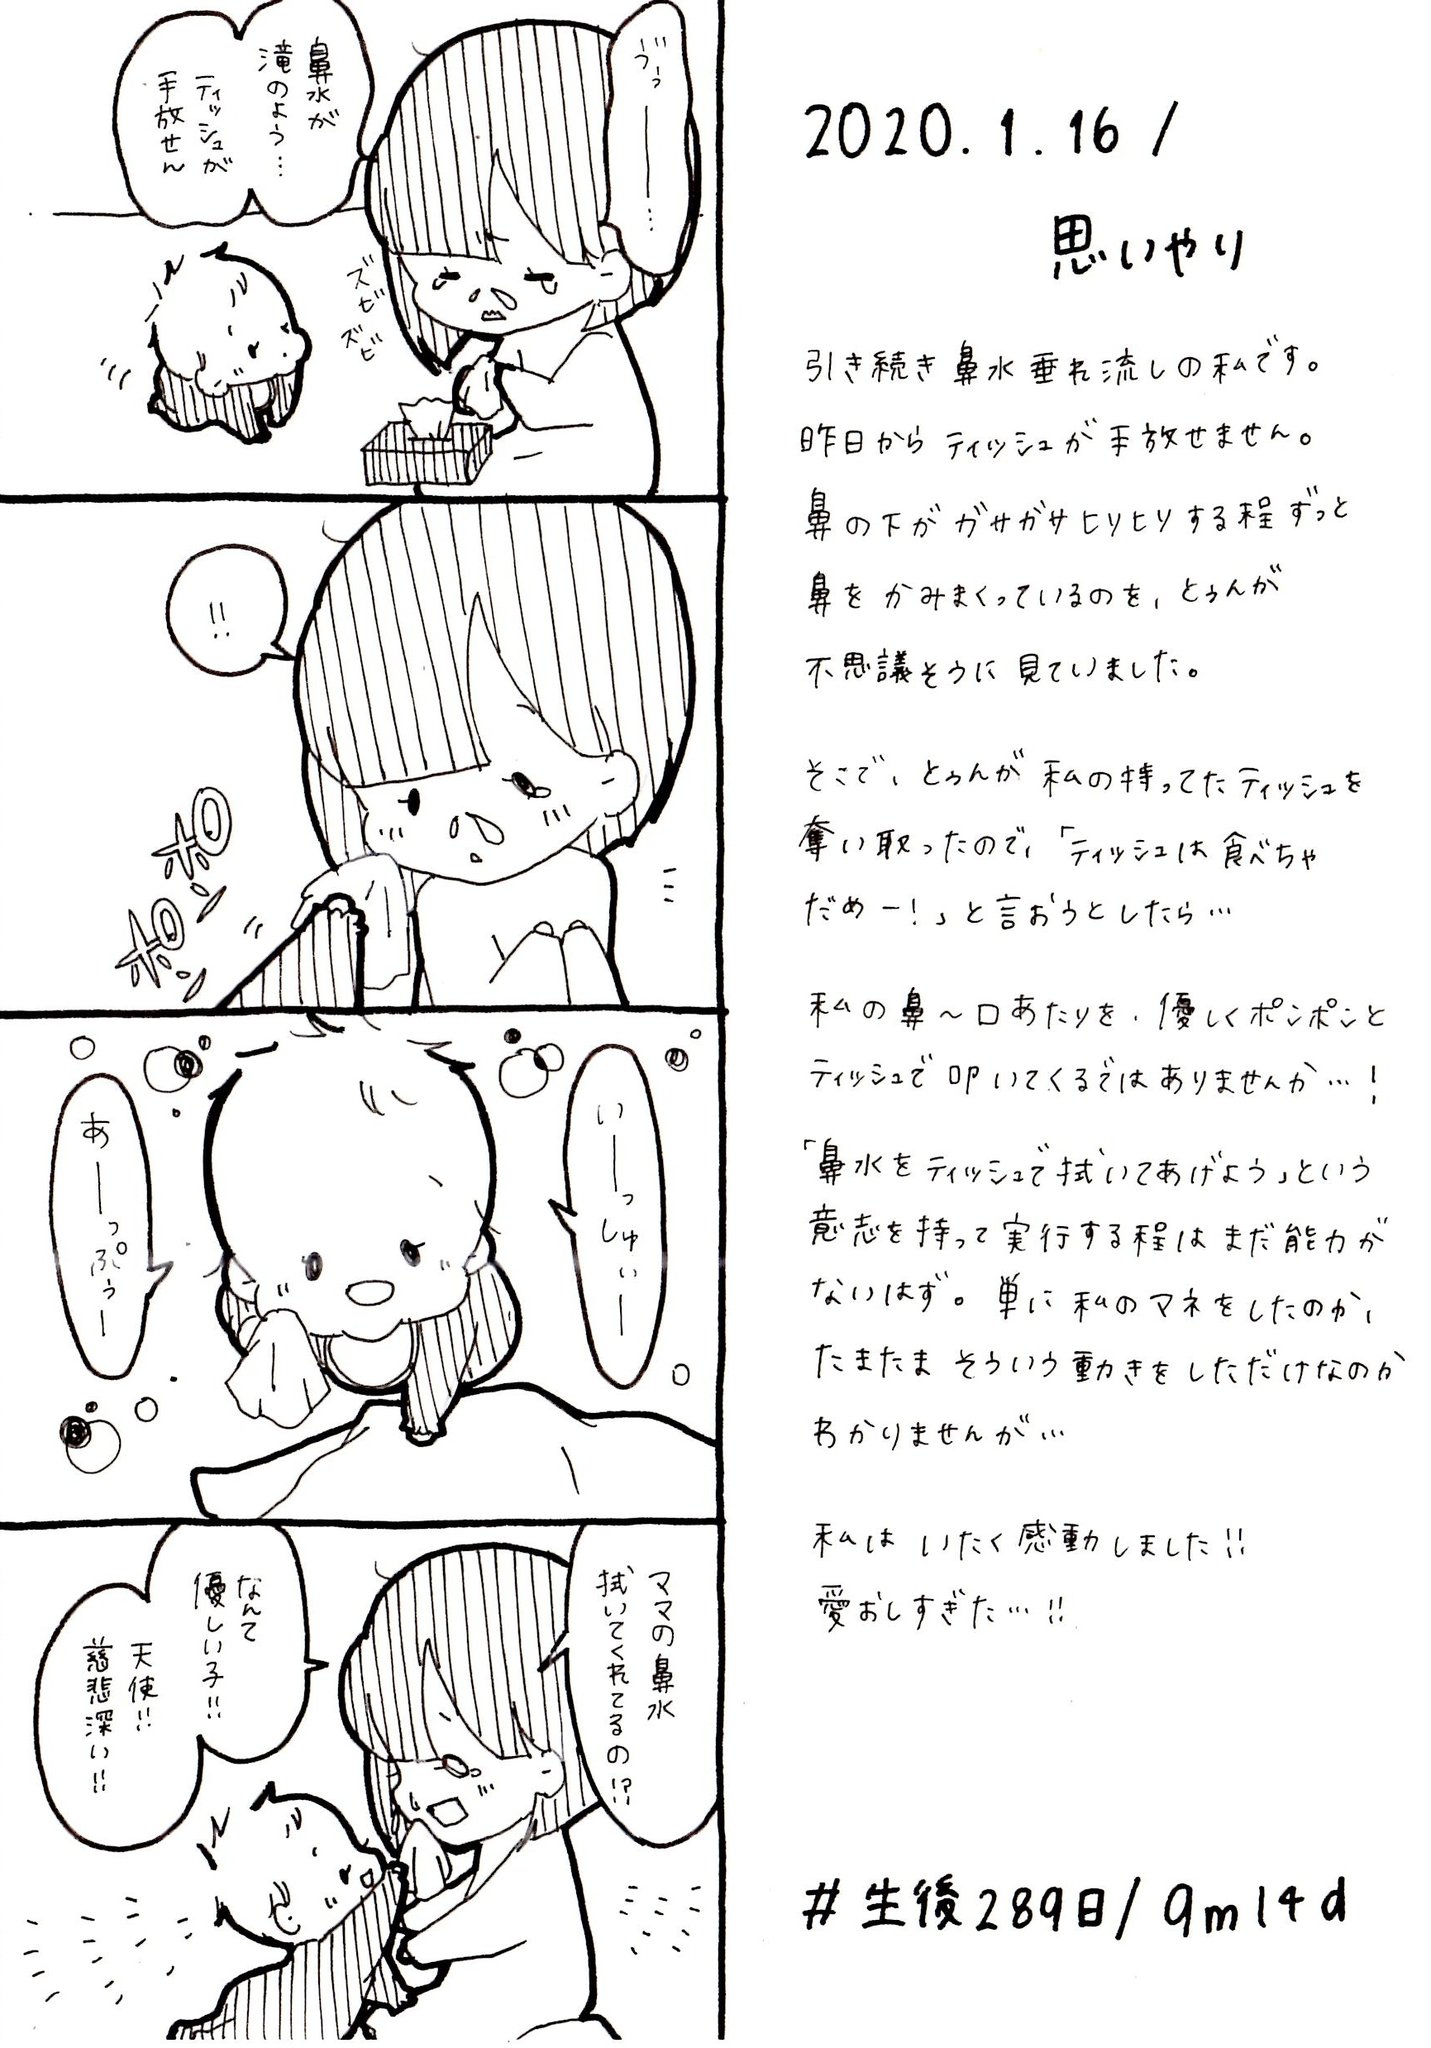 2020.1.16/
思いやり
引き続き鼻水垂れ流しの私です。
昨日からティッシュが手放せません。
鼻の下がガサガサヒリヒリする程ずっと
鼻をかみまくっているのを、とぅんが
不思議そうに見ていました。
そこで、とぅんが私の持ってたティッシュを
奪い取ったので、「ティッシュは食べちゃ
だめー!」と言おうとしたら…
私の鼻〜口あたりを、優しくポンポンと
ティッシュで叩いてくるではありませんか…!
「鼻水をティッシュで拭いてあげよう」という
意志を持って実行する程はまだ能力が
ないはず。単に私のマネをしたのか、
たまたまそういう動きをしただけなのか
わかりませんが…
私はいたく感動しました!!
愛おしすぎた…!!
#生後289日/9m14d
ゔっ——…
鼻水が
滝のよう…
ティッシュが
手放せん
ズビ
ズビ
!!
ポン
ポン
いーっしゅぃー
あーっぷぅー
ママの鼻水
拭いてくれてるの!?
なんて
優しい子!!
天使!!
慈悲深い!!